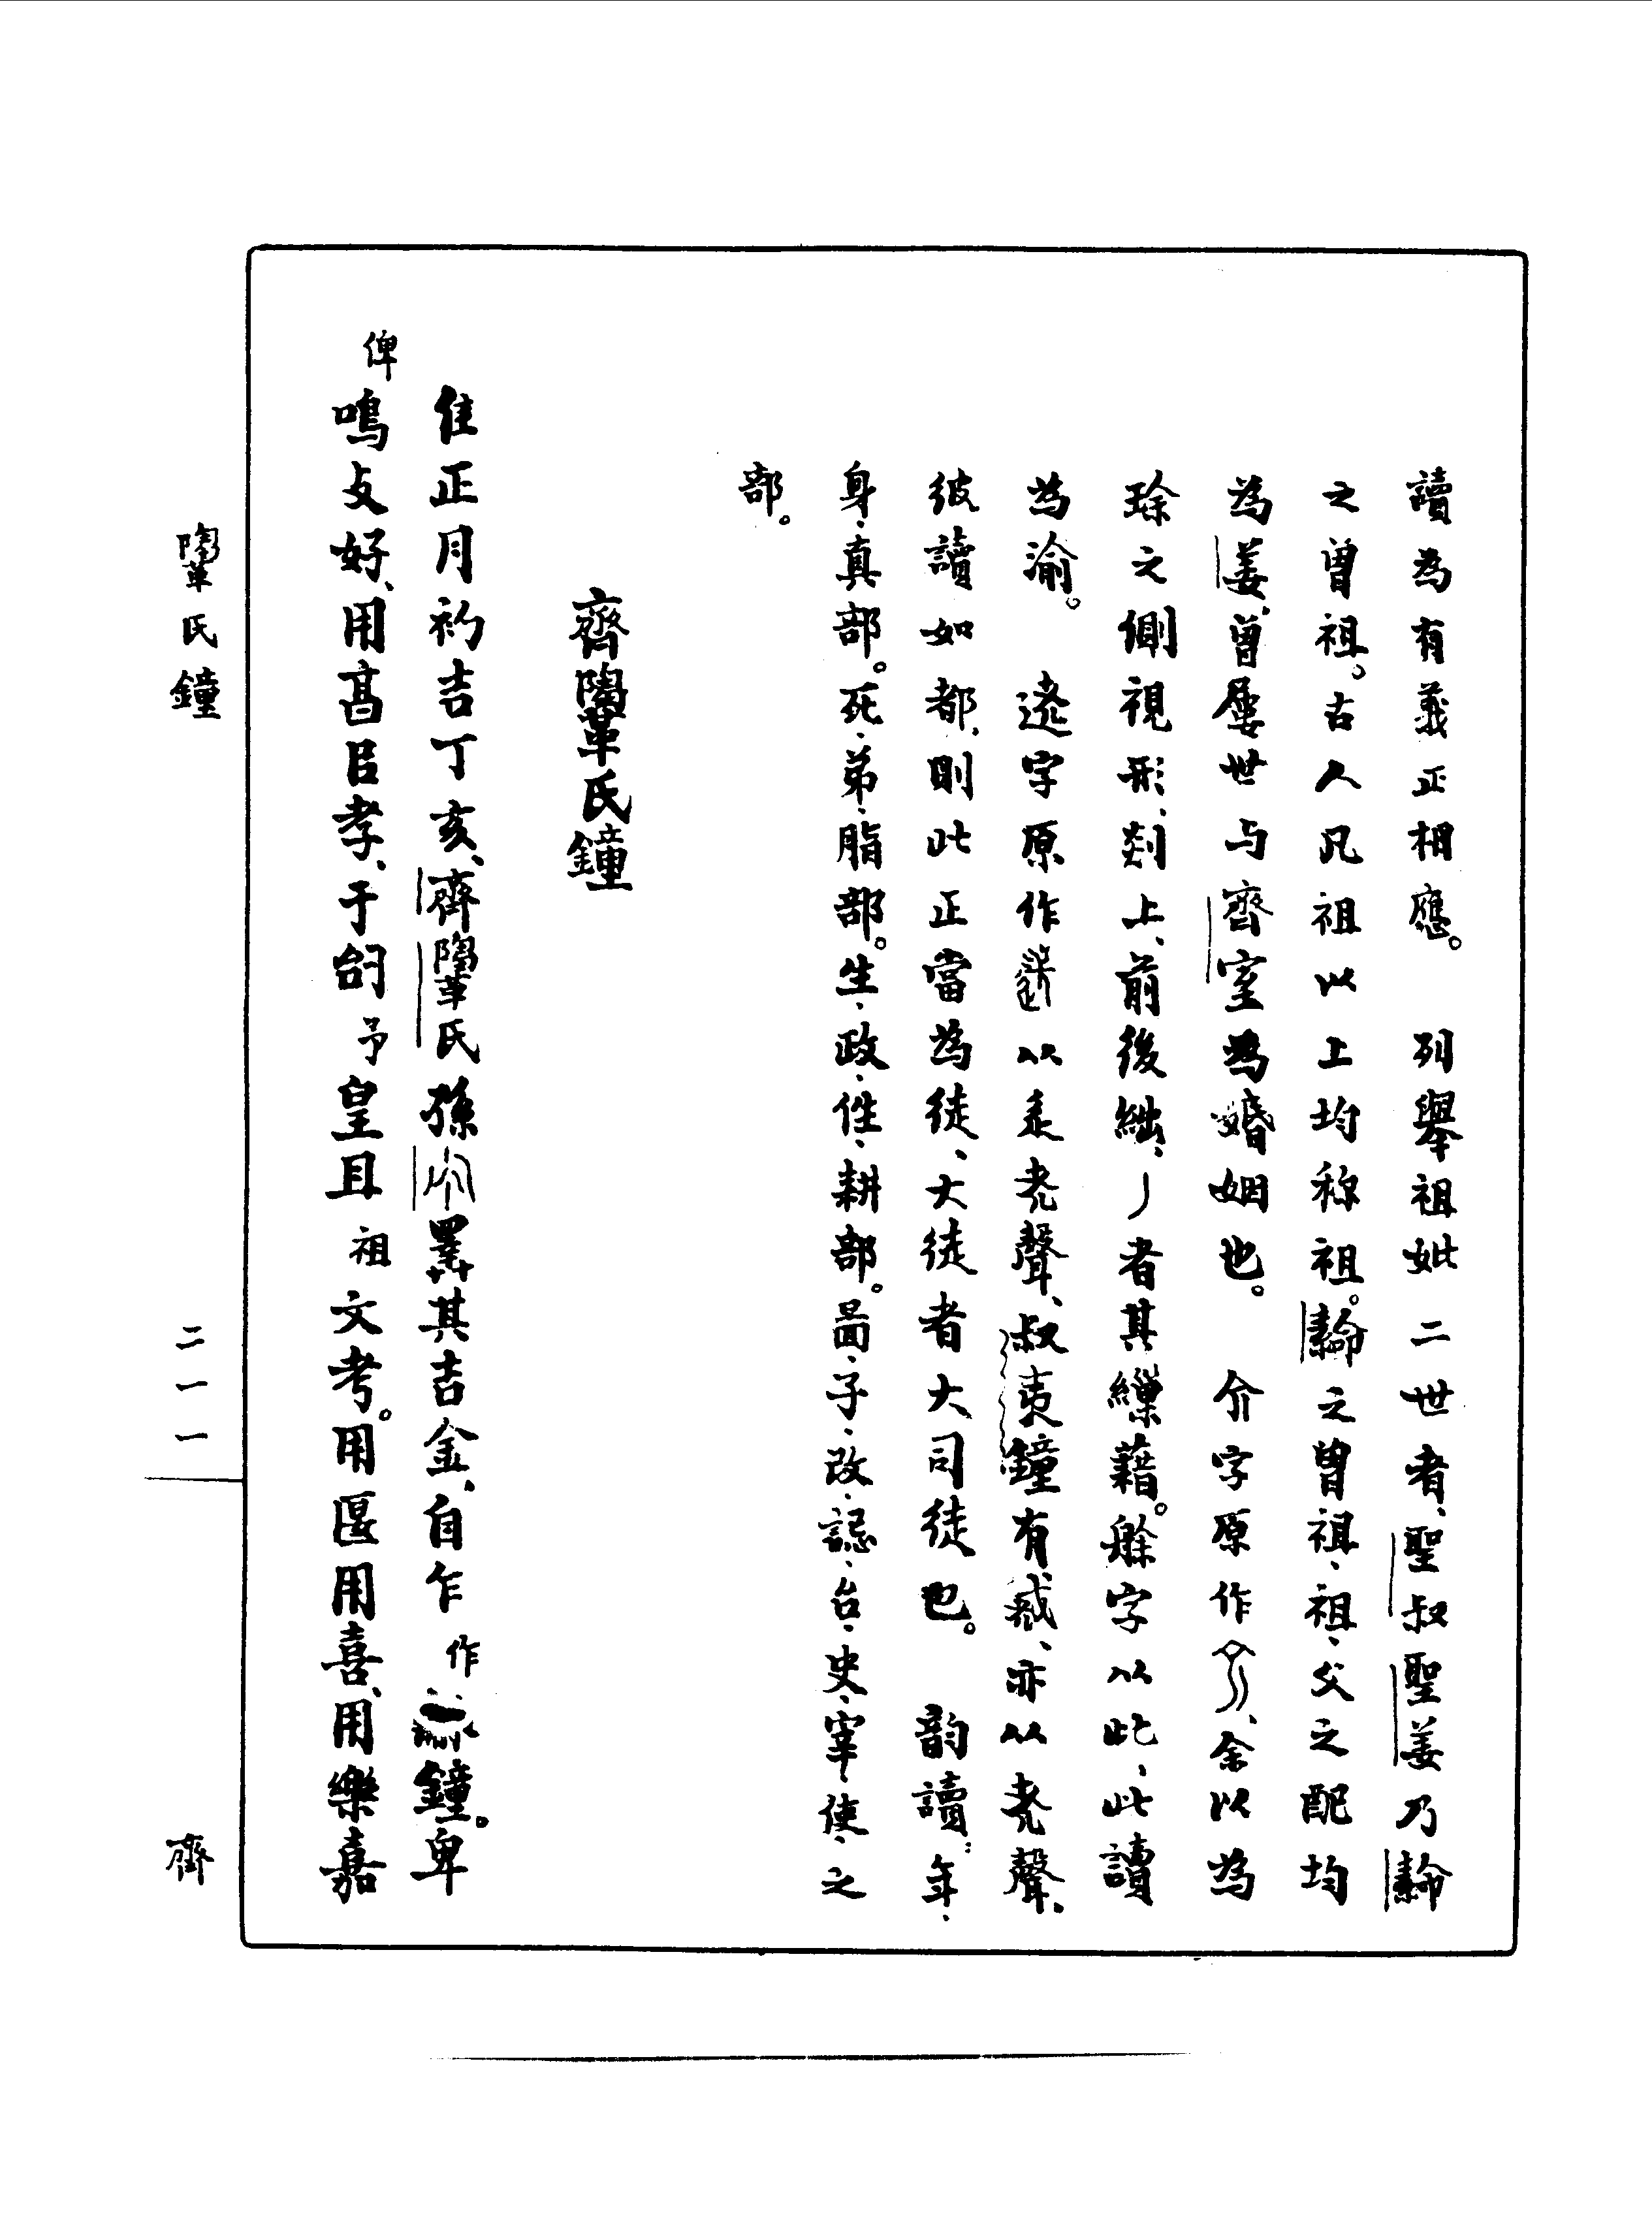 讀為有義正相應。　列舉祖妣二世者、聖叔聖姜乃𦅫
之曾祖。古人凡祖以上均称祖。𦅫之曾祖、祖、父之配均
為姜、曾屢世与齊室為婚姻也。　介字原作、余以為
珍之側視形、剡上、前後絀、丿者其繅藉。字以此、此讀
為渝。　字原作以辵声、叔夷鐘有、亦以聲、
彼讀如都、則此正當為徒、大徒者大司徒也。　韵讀：年、
身、真部。死、弟、脂部。生、政、性、耕部。啚、子、改、誋、台、史、宰、使、之
部。
齊𩍂氏鐘
隹正月初吉丁亥、齊𩍂氏孫睪其吉金、自乍作鐘。卑
俾鳴攴好、用亯㠯孝、于㠯予皇且祖文考。用匽用喜、用樂嘉
𩍂氏鐘
二一一
齊